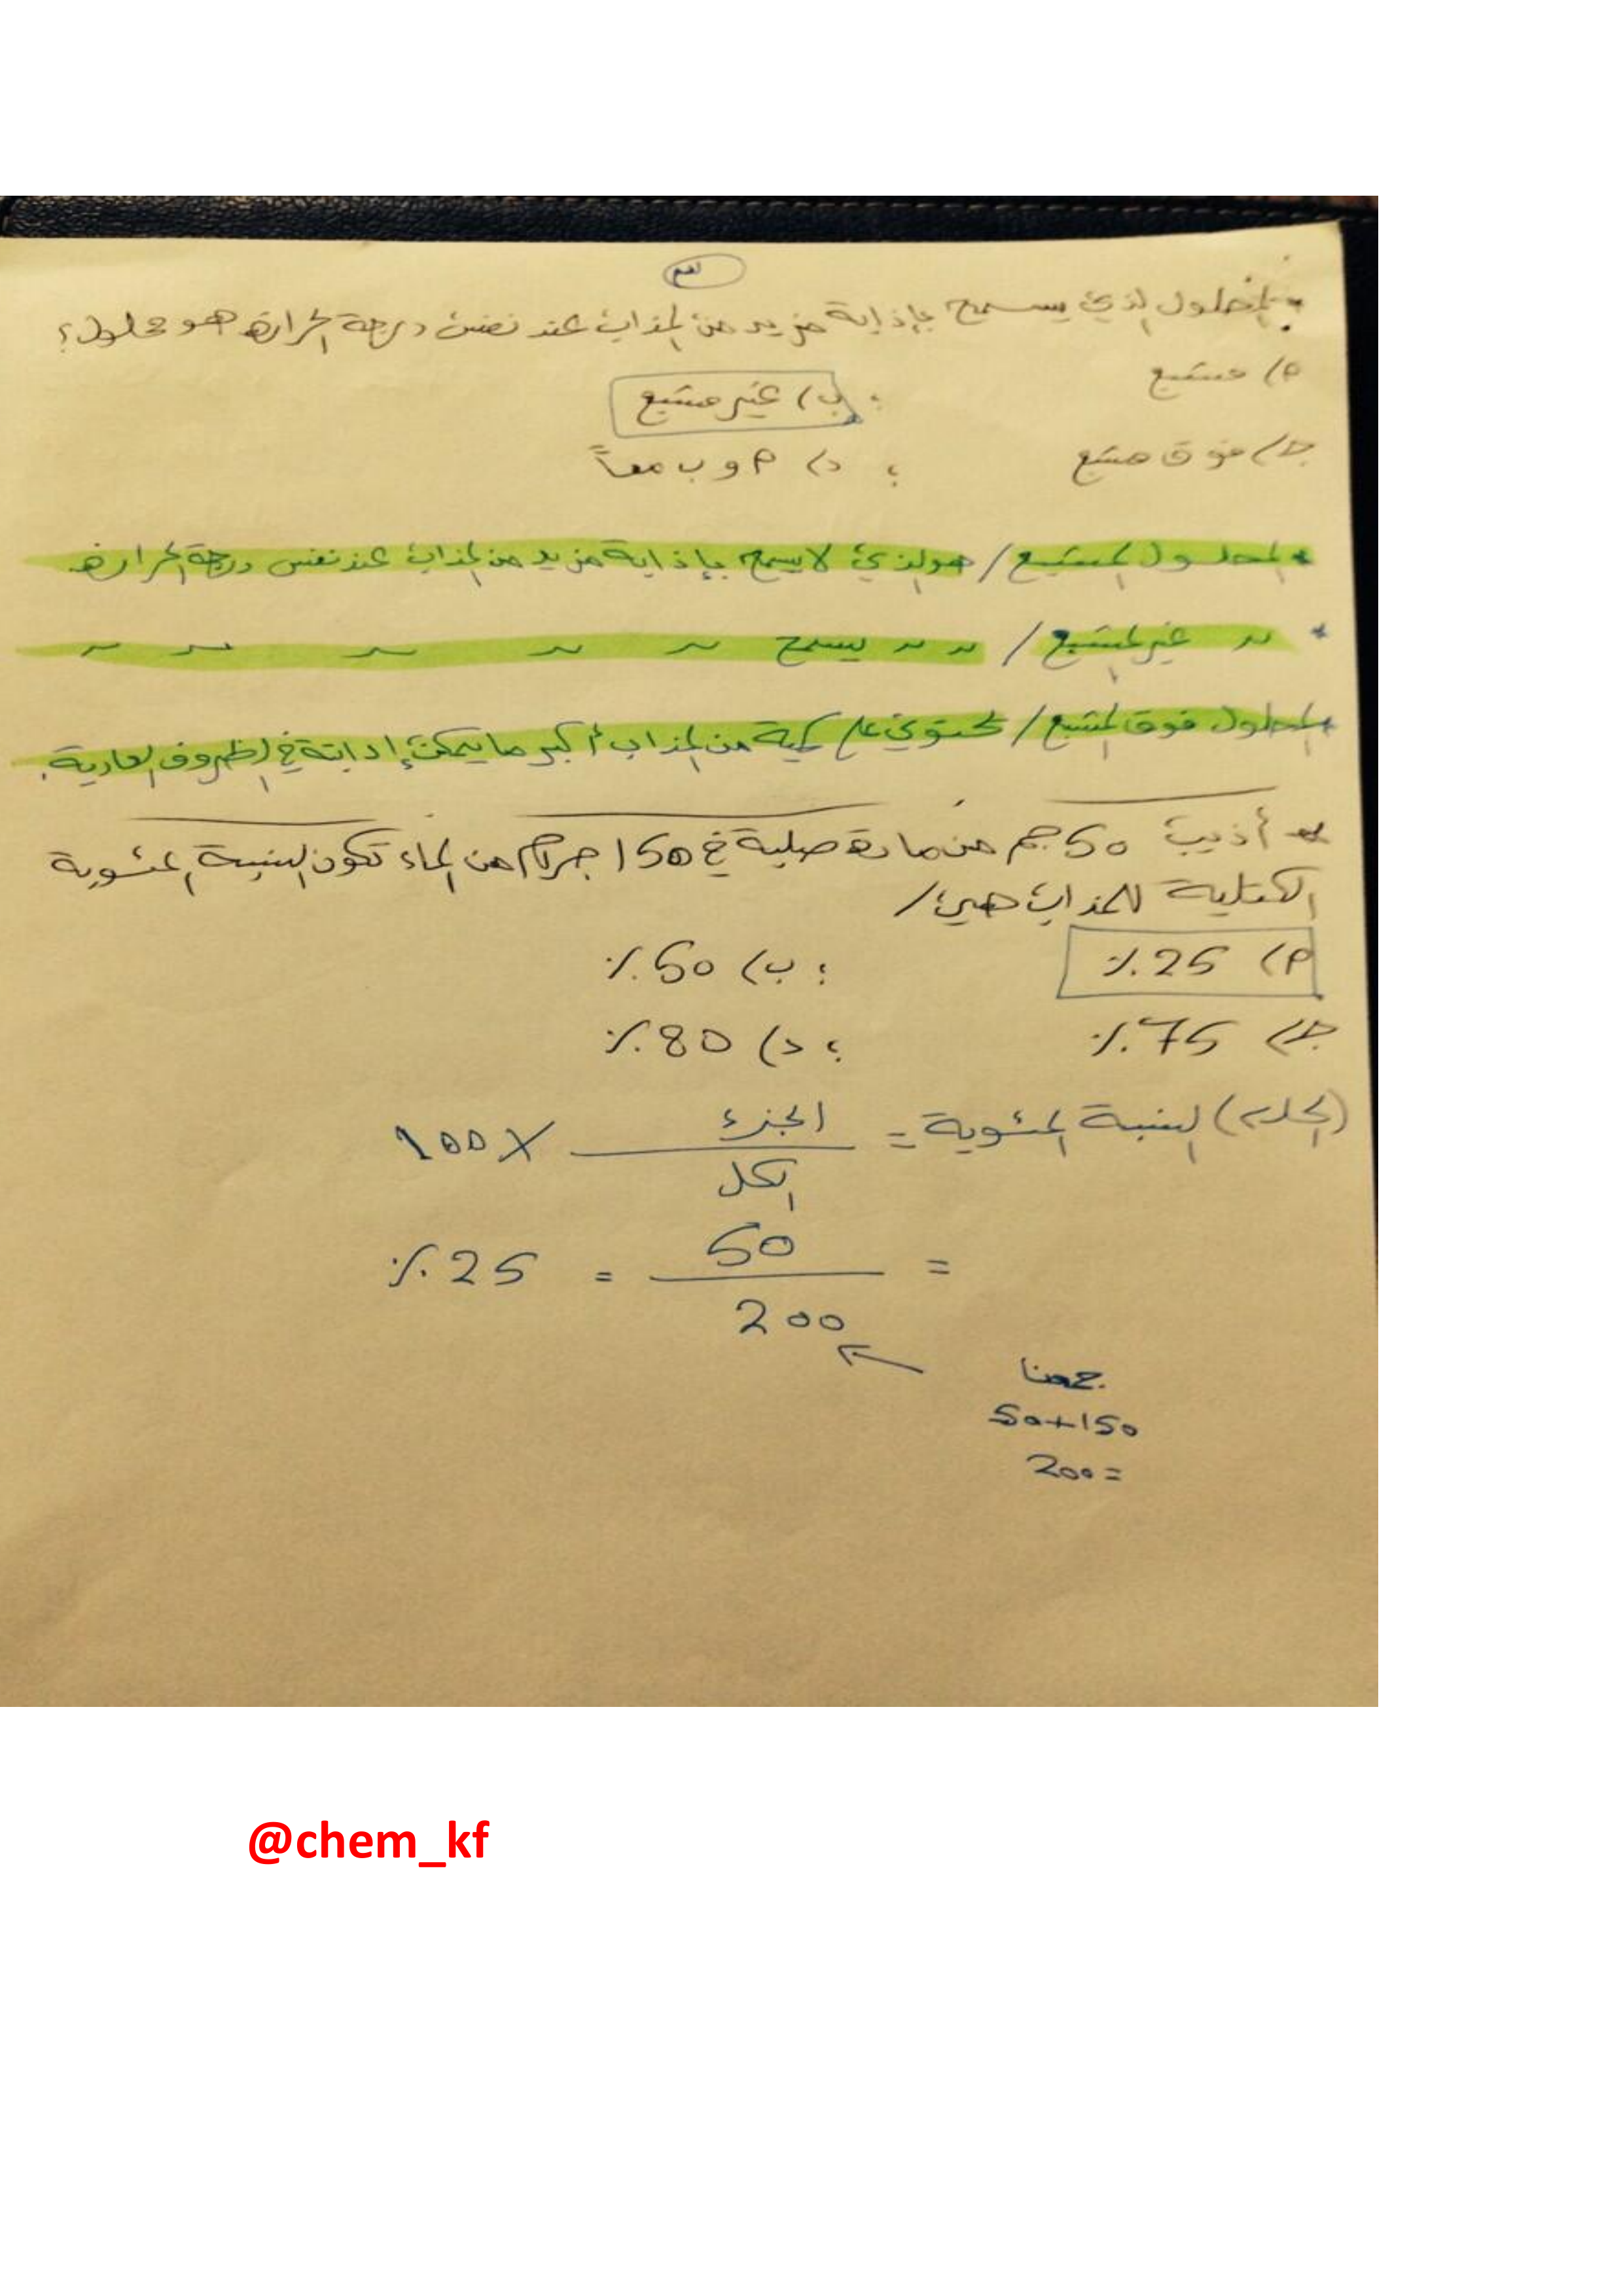 ٣
* المحلول الذي يسمح بإذابة مزيد من المذاب عند نفس درجة الحرارة هو محلول؟
أ) مشبع ؛ ب) غير مشبع
جـ) فوق مشبع ؛ د) أ و ب معاً
* المحلول المشبع / هو الذي لا يسمح بإذابة مزيد من المذاب عند نفس درجة الحرارة
* ~ غير المشبع / ~ ~ يسمح ~ ~ ~ ~ ~
* المحلول فوق المشبع / يحتوي على كمية من المذاب أكبر مما يمكن إذابته في الظروف العادية.
* أذيب 50 جم من مادة صلبة في 150 جرام من الماء تكون النسبة المئوية
الكتلية للمذاب هي /
أ) 25٪ ؛ ب) 50٪
جـ) 75٪ ؛ د) 80٪
(الحل) النسبة المئوية = الجزء / الكل × 100
= 50 / 200 = 25٪
جمعنا
50+150
=200
@chem_kf